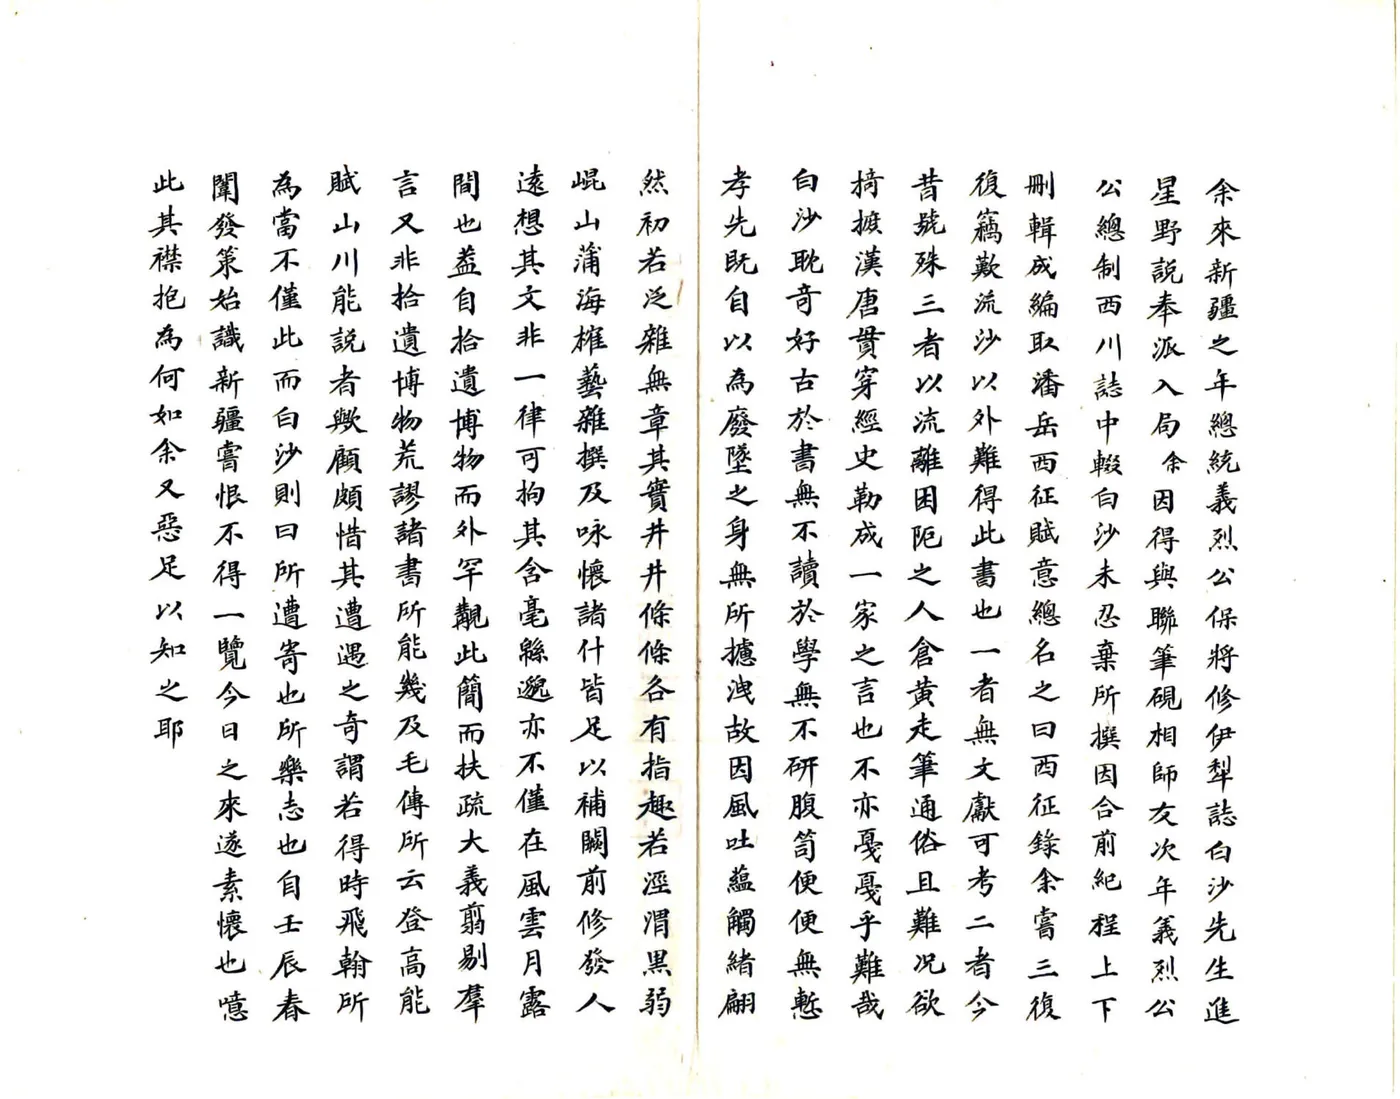 余來新疆之年總統義烈公保將修伊犁誌白沙先生進
星野說奉派入局余因得與聯筆硯相師友次年義烈公
公總制西川誌中輟白沙未忍棄所撰因合前紀程上下
刪輯成編取潘岳西征賦意總名之曰西征錄余嘗三復
復竊歎流沙以外難得此書也一者無文獻可考二者今
昔號殊三者以流離困阨之人倉黄走筆通俗且難況欲
摛摭漢唐貫穿經史勒成一家之言也不亦戛戛乎難哉
白沙耽奇好古於書無不讀於學無不研腹笥便便無慙
孝先既自以為廢墜之身無所攄洩故因風吐蘊觸緒翩
然初若泛雜無章其實井井條條各有指趣若涇渭黒弱
崐山蒲海榷藝雜撰及咏懷諸什皆足以補闕前修發人
遠想其文非一律可拘其含毫緜邈亦不僅在風雲月露
間也葢自拾遺博物而外罕覯此簡而扶疏大義翦剔羣
言又非拾遺博物荒謬諸書所能幾及毛傳所云登高能
賦山川能說者歟顧頗惜其遭遇之奇謂若得時飛翰所
為當不僅此而白沙則曰所遭寄也所樂志也自壬辰春
闈發策始識新疆嘗恨不得一覽今日之來遂素懷也噫
此其襟抱為何如余又惡足以知之耶